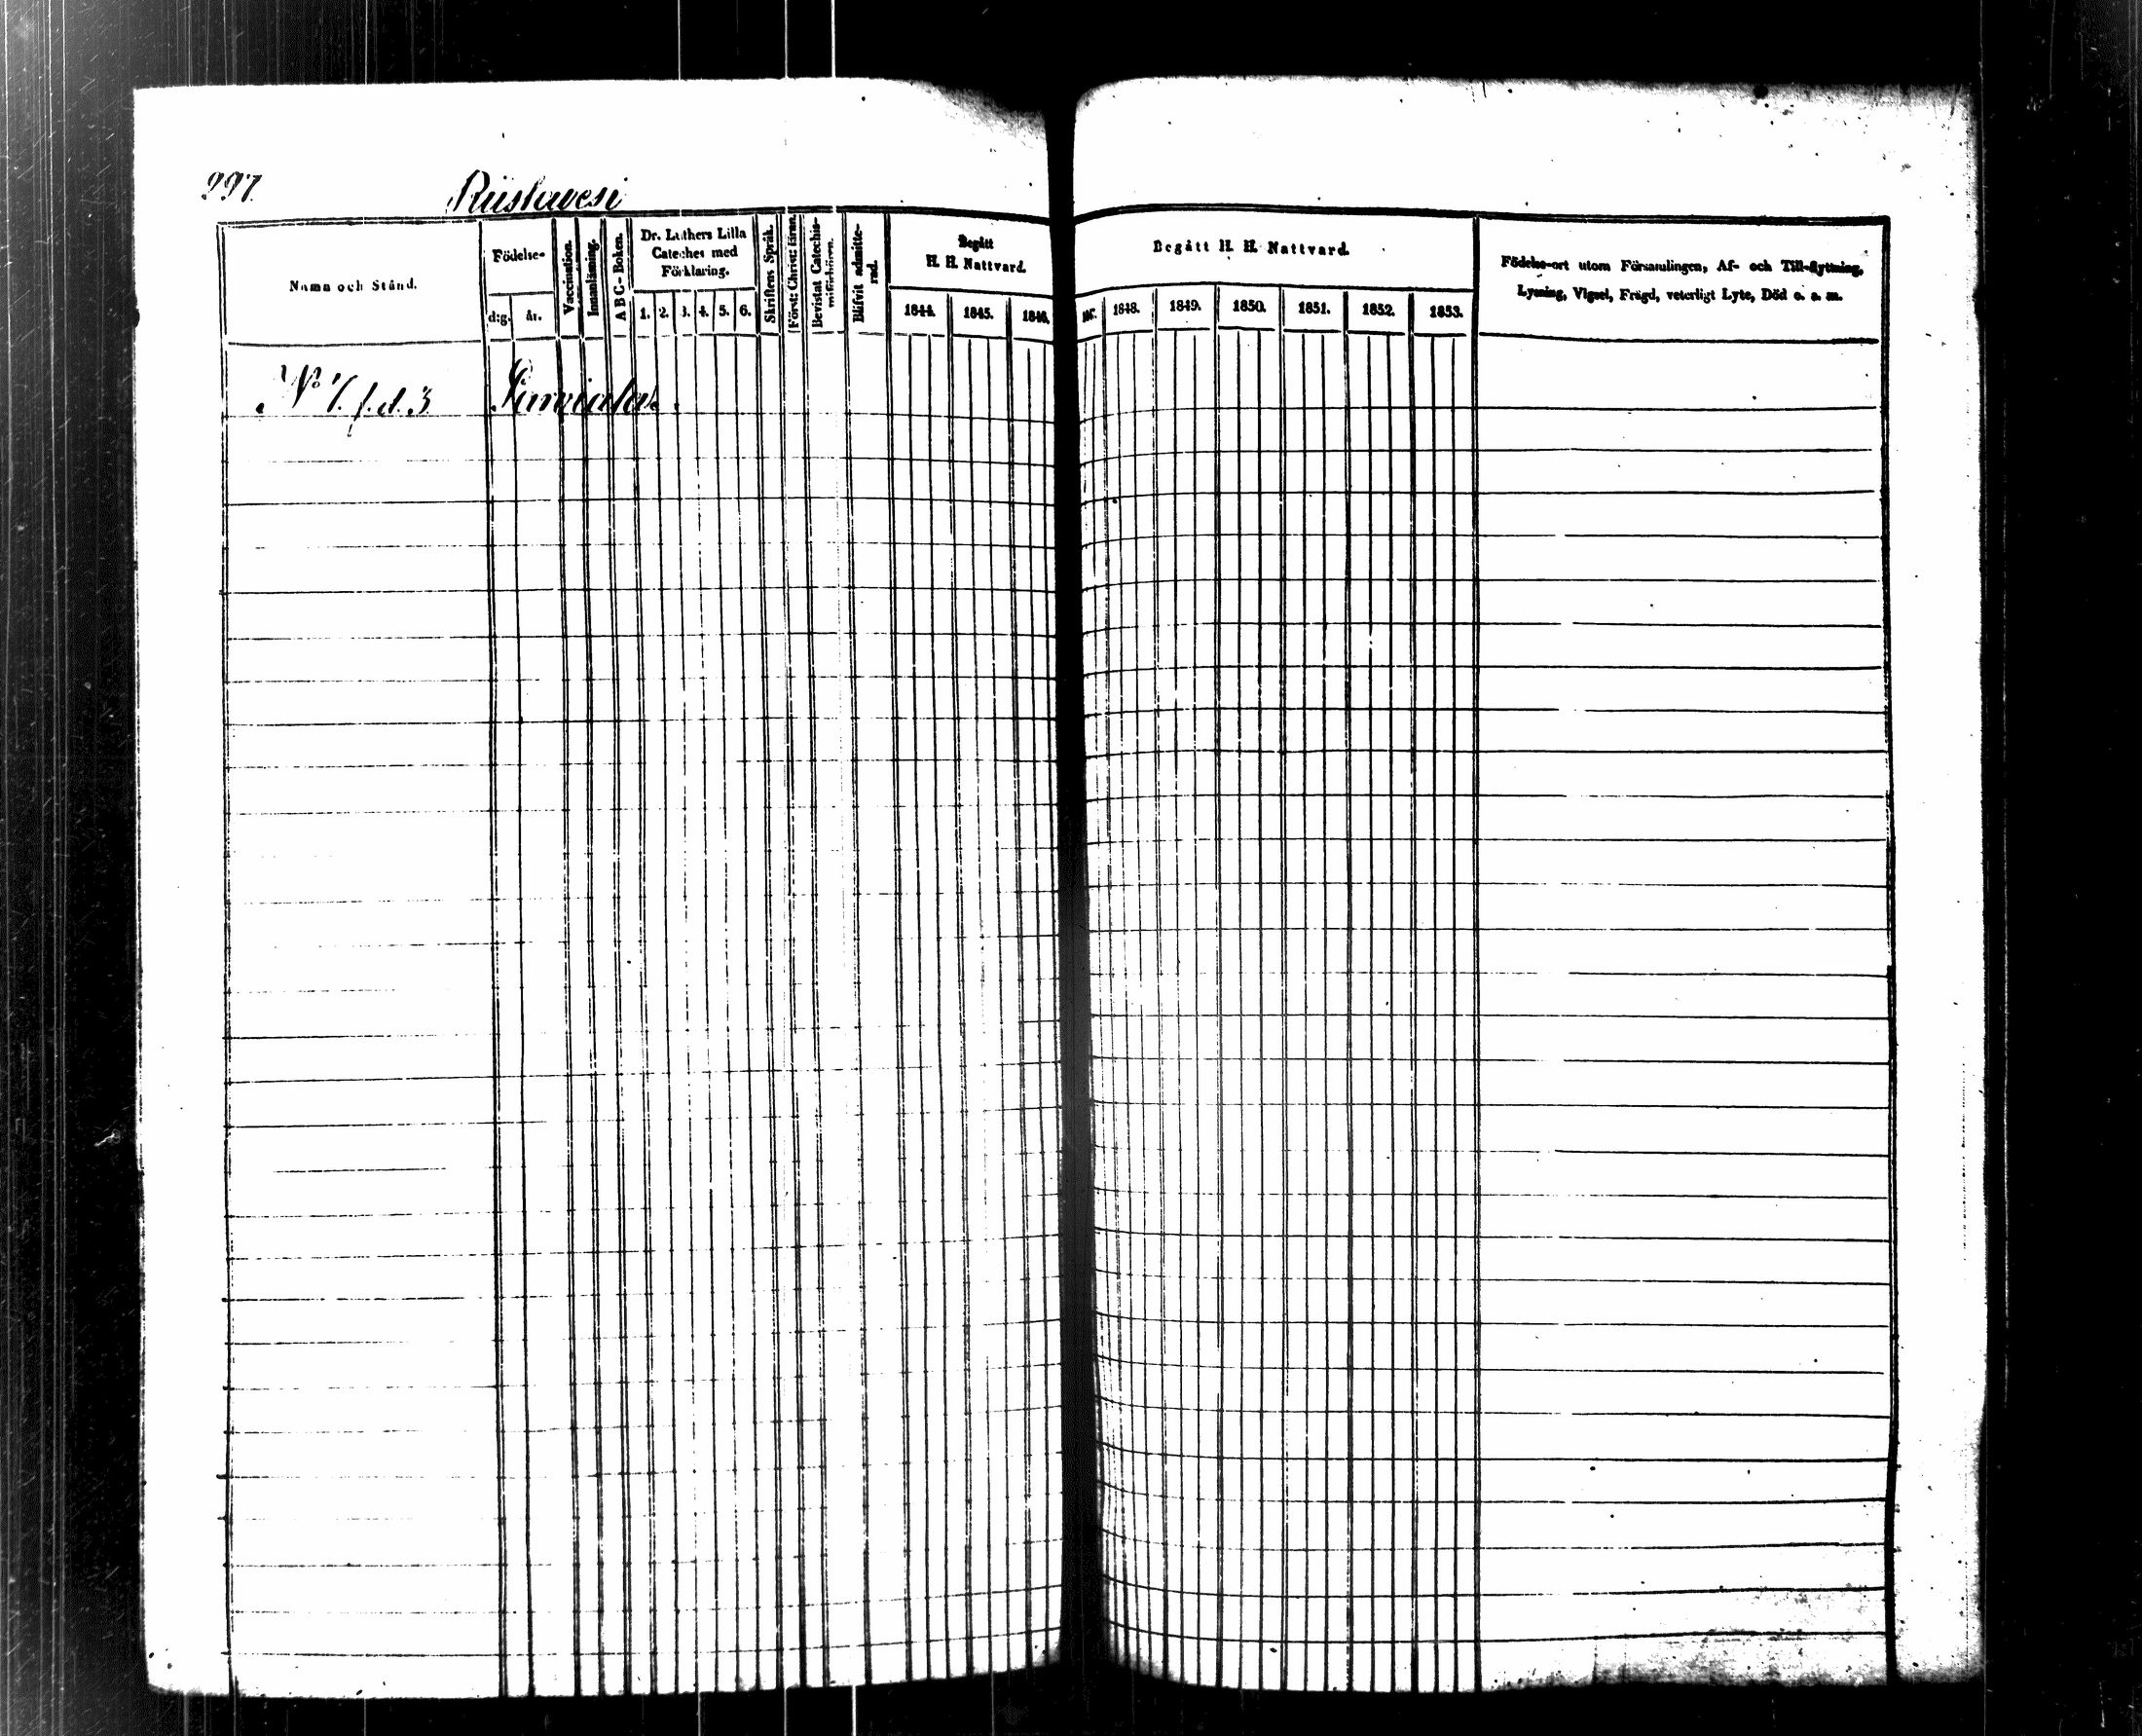 297.
Riistavesi
Namn och Stånd.
Födelse-
d:g. år.
Vaccination.
Innanläsning.
A B C-Boken.
Dr. Luthers Lilla
Cateches med
Förklaring.
1. 2. 3. 4. 5. 6.
Skriftens Språk.
Först: Christ: läran.
Bevistat Catechis-
Blifvit admitte-
rad.
Begått
H. H. Nattvard.
1844. 1845. 1846.
Begått H. H. Nattvard.
1848. 1849. 1850. 1851. 1852. 1853.
Födelse-ort utom Församlingen, Af- och Till-flyttning,
Lysning, Vigsel, Frägd, veterligt Lyte, Död o. s. m.
No 1. f. d. 3